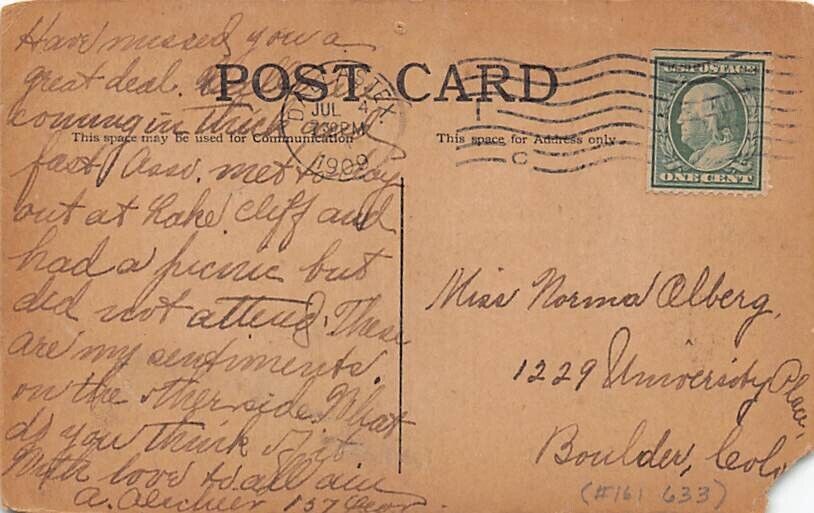 Have missed you a
great deal.
coming in thick and
fast. Asso. met to day
out at Lake Cliff and
had a picnic but
did not attend. These
are my sentiments
on the other side. What
do you think of it
With love to all
a. 157
POST CARD
This space may be used for Communication
This space for Address only
DALLAS, TEX.
JUL 4
PM
1909
U.S. POSTAGE
ONE CENT
Miss Norma Olberg,
1229 University Place,
Boulder, Colo
(#161 633)